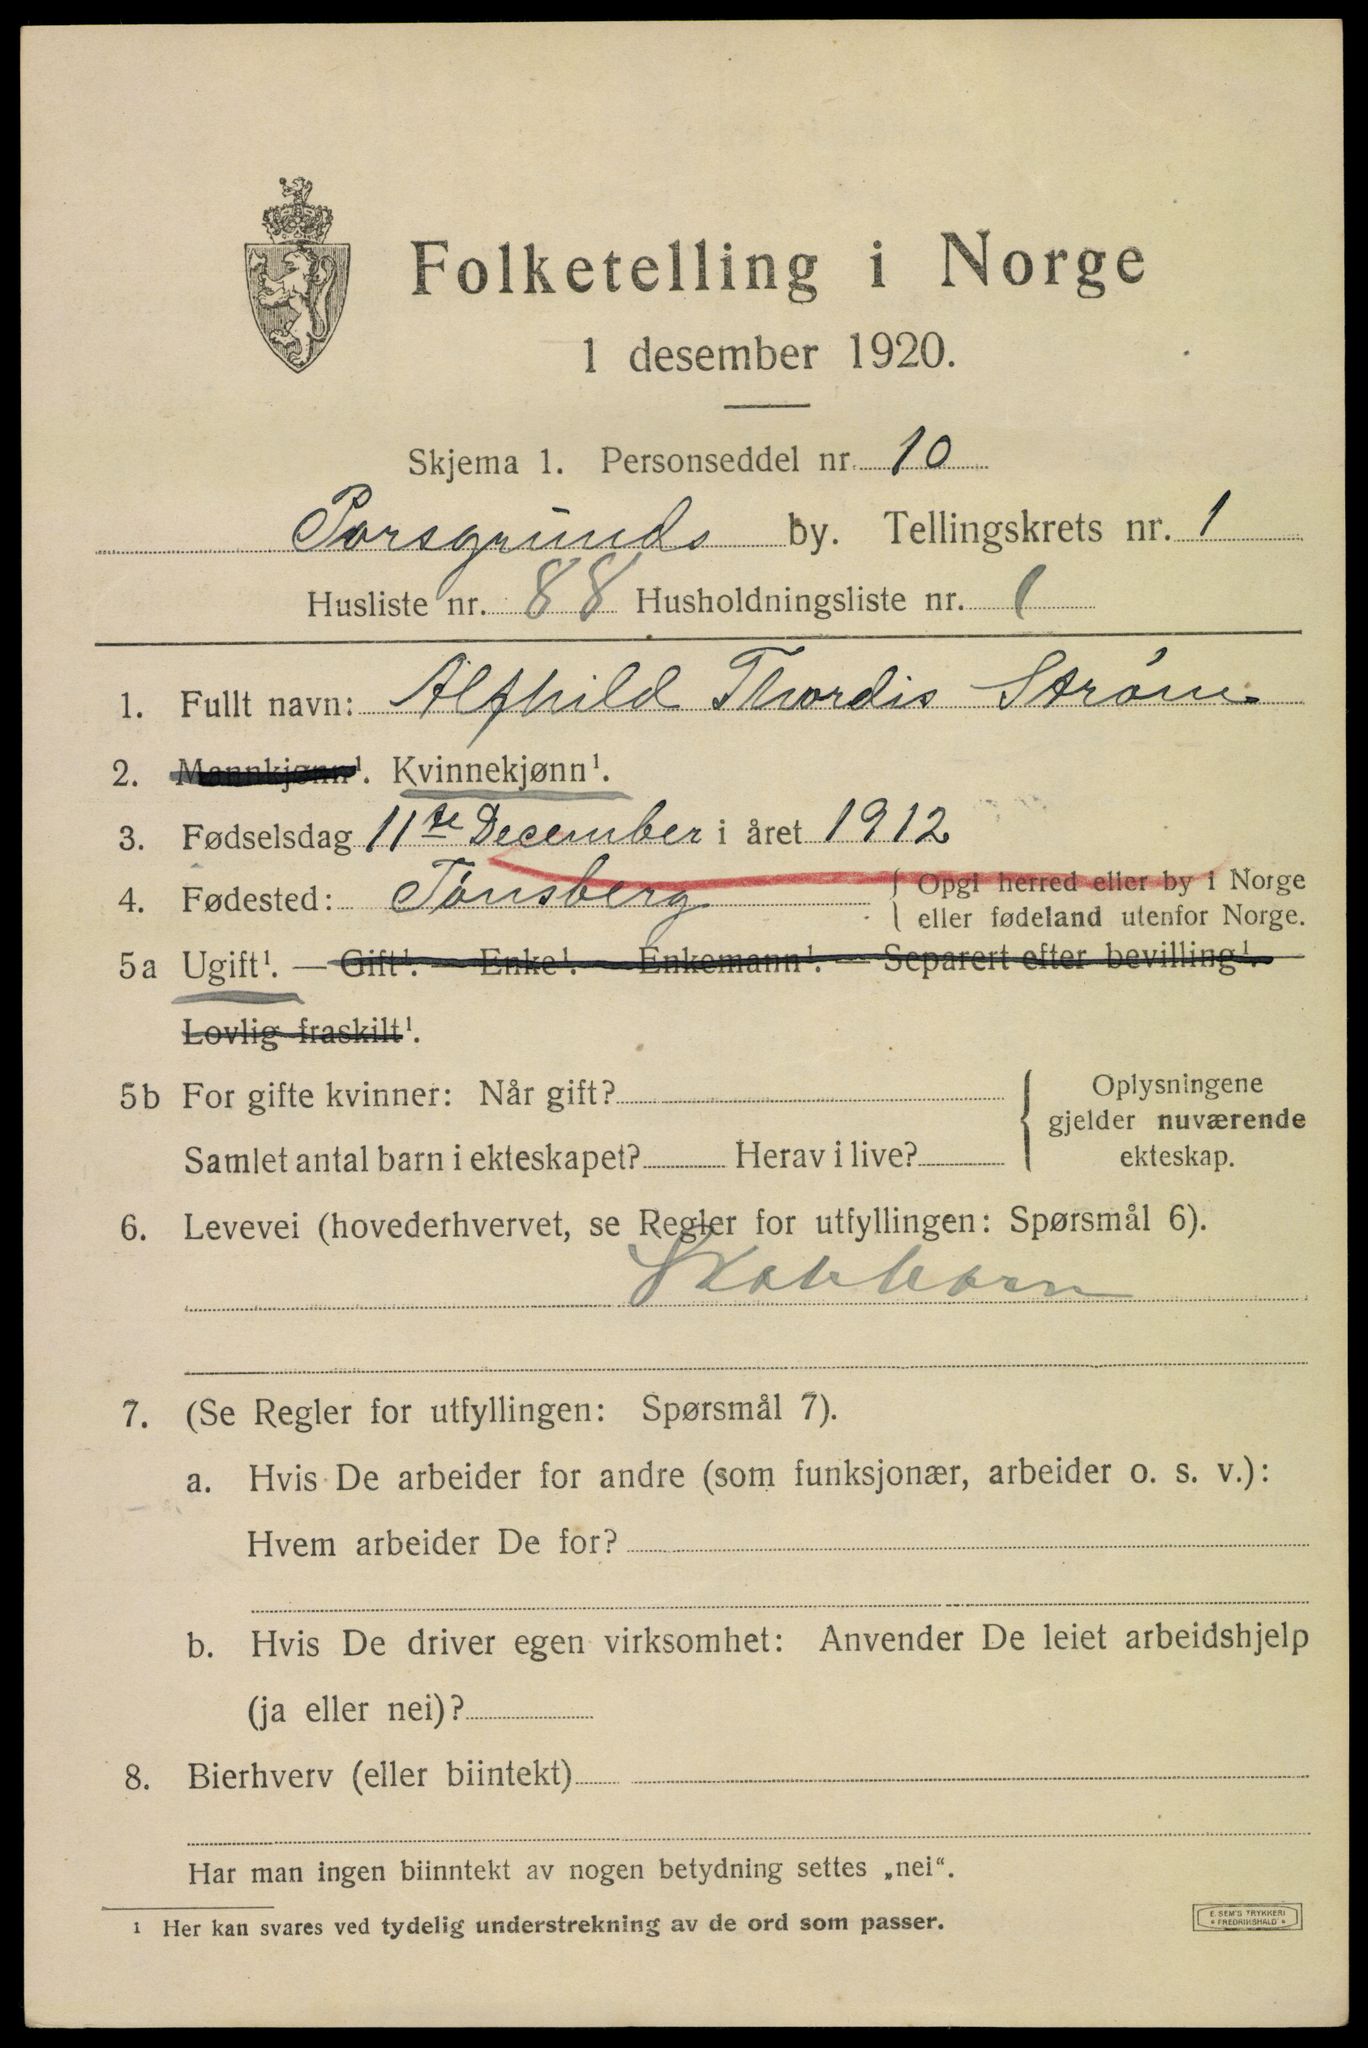 Folketelling i Norge
1 desember 1920.
Skjema 1. Personseddel nr. 10
Porsgrunds by. Tellingskrets nr. 1
Husliste nr. 88 Husholdningsliste nr. 1
1. Fullt navn: Alfhild Thordis Strøm
2. Mannkjønn¹. Kvinnekjønn¹.
3. Fødselsdag 11te December i året 1912
4. Fødested: Tønsberg { Opgi herred eller by i Norge
eller fødeland utenfor Norge.
5a Ugift¹. — Gift¹. — Enke¹. — Enkemann¹. — Separert efter bevilling¹.
Lovlig fraskilt¹.
5b For gifte kvinner: Når gift?
Samlet antal barn i ekteskapet? Herav i live?
{ Oplysningene
gjelder nuværende
ekteskap.
6. Levevei (hovederhvervet, se Regler for utfyllingen: Spørsmål 6).
Skolebarn
7. (Se Regler for utfyllingen: Spørsmål 7).
a. Hvis De arbeider for andre (som funksjonær, arbeider o. s. v.):
Hvem arbeider De for?
b. Hvis De driver egen virksomhet: Anvender De leiet arbeidshjelp
(ja eller nei)?
8. Bierhverv (eller biintekt)
Har man ingen biinntekt av nogen betydning settes „nei“.
¹ Her kan svares ved tydelig understrekning av de ord som passer.
E. SEM'S TRYKKERI
FREDRIKSHALD